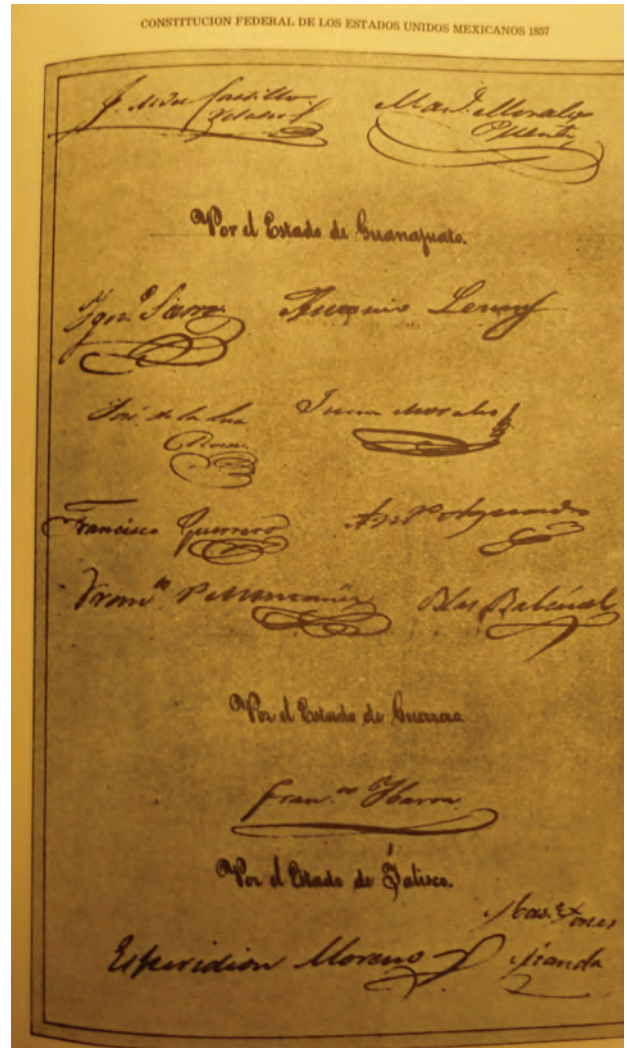 CONSTITUCION FEDERAL DE LOS ESTADOS UNIDOS MEXICANOS 1857
Castillo Man. J. Morales
Velasco Puente
Por el Estado de Guanajuato.
Ign.º Sierra Lemus
José de la Luz Juan Morales
Rosas
Francisco Guerrero Ant.º Aguado
Fran.co P. Montañez Blas Balcárcel
Por el Estado de Guerrero
Fran.co Ibarra
Por el Estado de Jalisco.
Espiridion Moreno